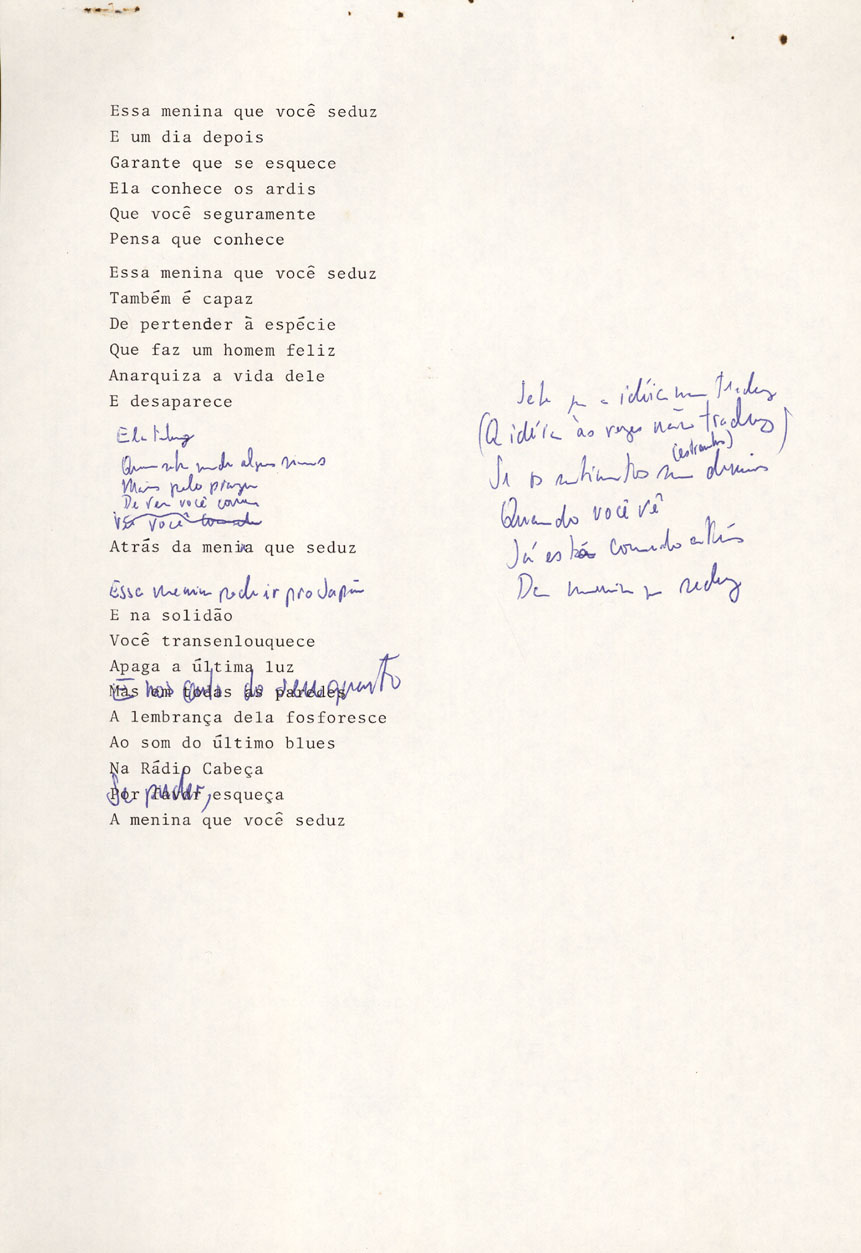 Essa menina que você seduz
E um dia depois
Garante que se esquece
Ela conhece os ardis
Que você seguramente
Pensa que conhece
Essa menina que você seduz
Também é capaz
De pertender à espécie
Que faz um homem feliz
Anarquiza a vida dele
E desaparece
Ela talvez
Quem sabe mude alguns
Mais pelo prazer
De ver você
Ver você
Atrás da menina que seduz
Essa menina pode ir pro Japão
E na solidão
Você transenlouquece
Apaga a última luz
Mas em todas as paredes
E nos do seu quarto
A lembrança dela fosforesce
Ao som do último blues
Na Rádio Cabeça
Por favor esqueça
Se puder,
A menina que você seduz
que a idéia não traduz
(A idéia às vezes não traduz)
(estranhos)
Se os sentimentos são demais
Quando você vê
Já está correndo atrás
Da menina que seduz